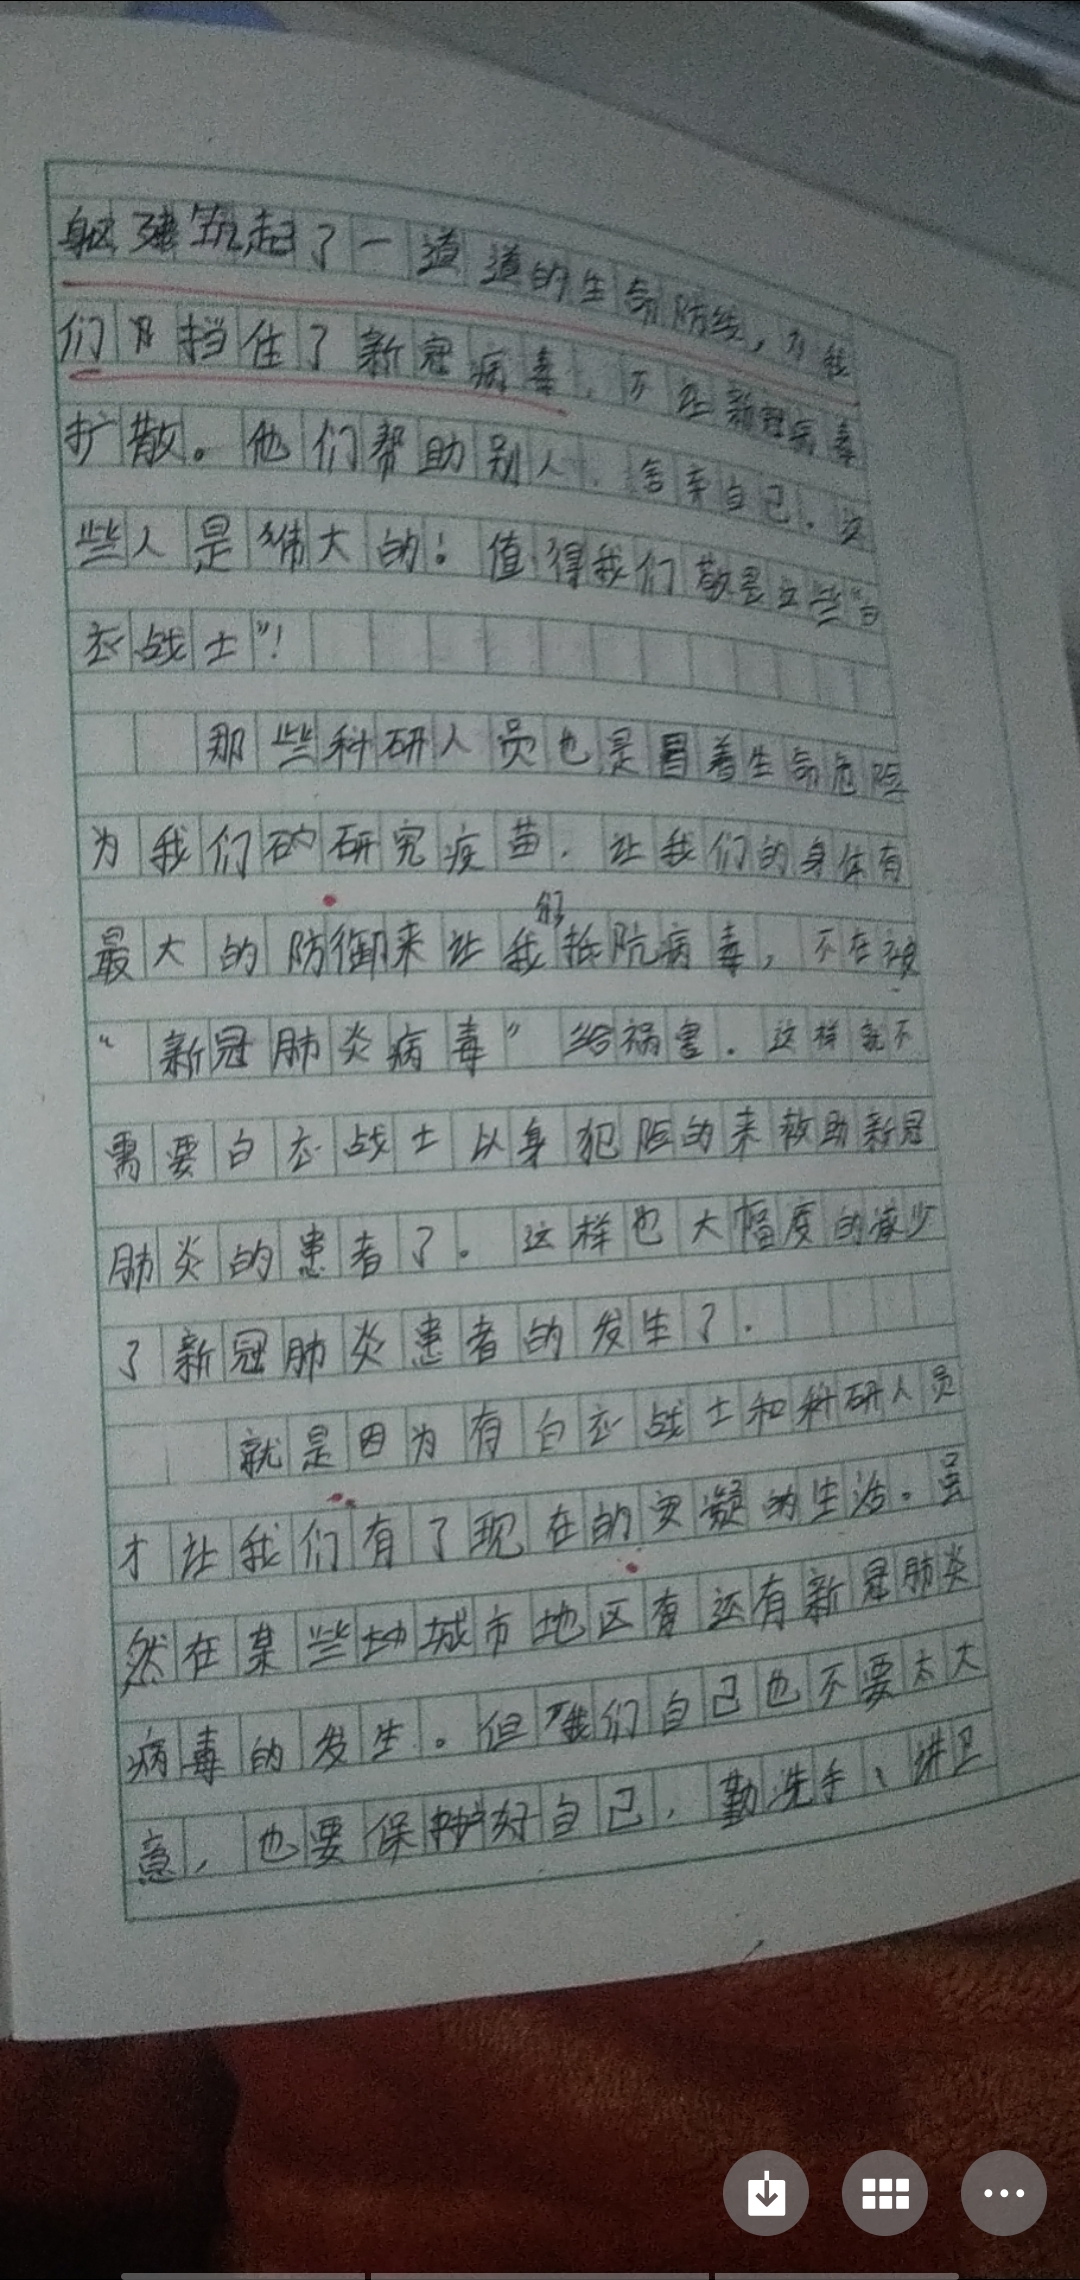 躯建筑起了一道道的生命防线，为我
们挡住了新冠病毒，不让新冠病毒
扩散。他们帮助别人，舍弃自己，这
些人是伟大的！值得我们敬畏这些“白
衣战士”！
那些科研人员也是冒着生命危险
为我们研究疫苗，让我们的身体有
最大的防御来让我们抵抗病毒，不在被
“新冠肺炎病毒”给祸害。这样就不
需要白衣战士以身犯险的来救助新冠
肺炎的患者了。这样也大幅度的减少
了新冠肺炎患者的发生了。
就是因为有白衣战士和科研人员
才让我们有了现在的安凝的生活。虽
然在某些城市地区有还有新冠肺炎
病毒的发生。但我们自己也不要太大
意，也要保护好自己，勤洗手、讲卫